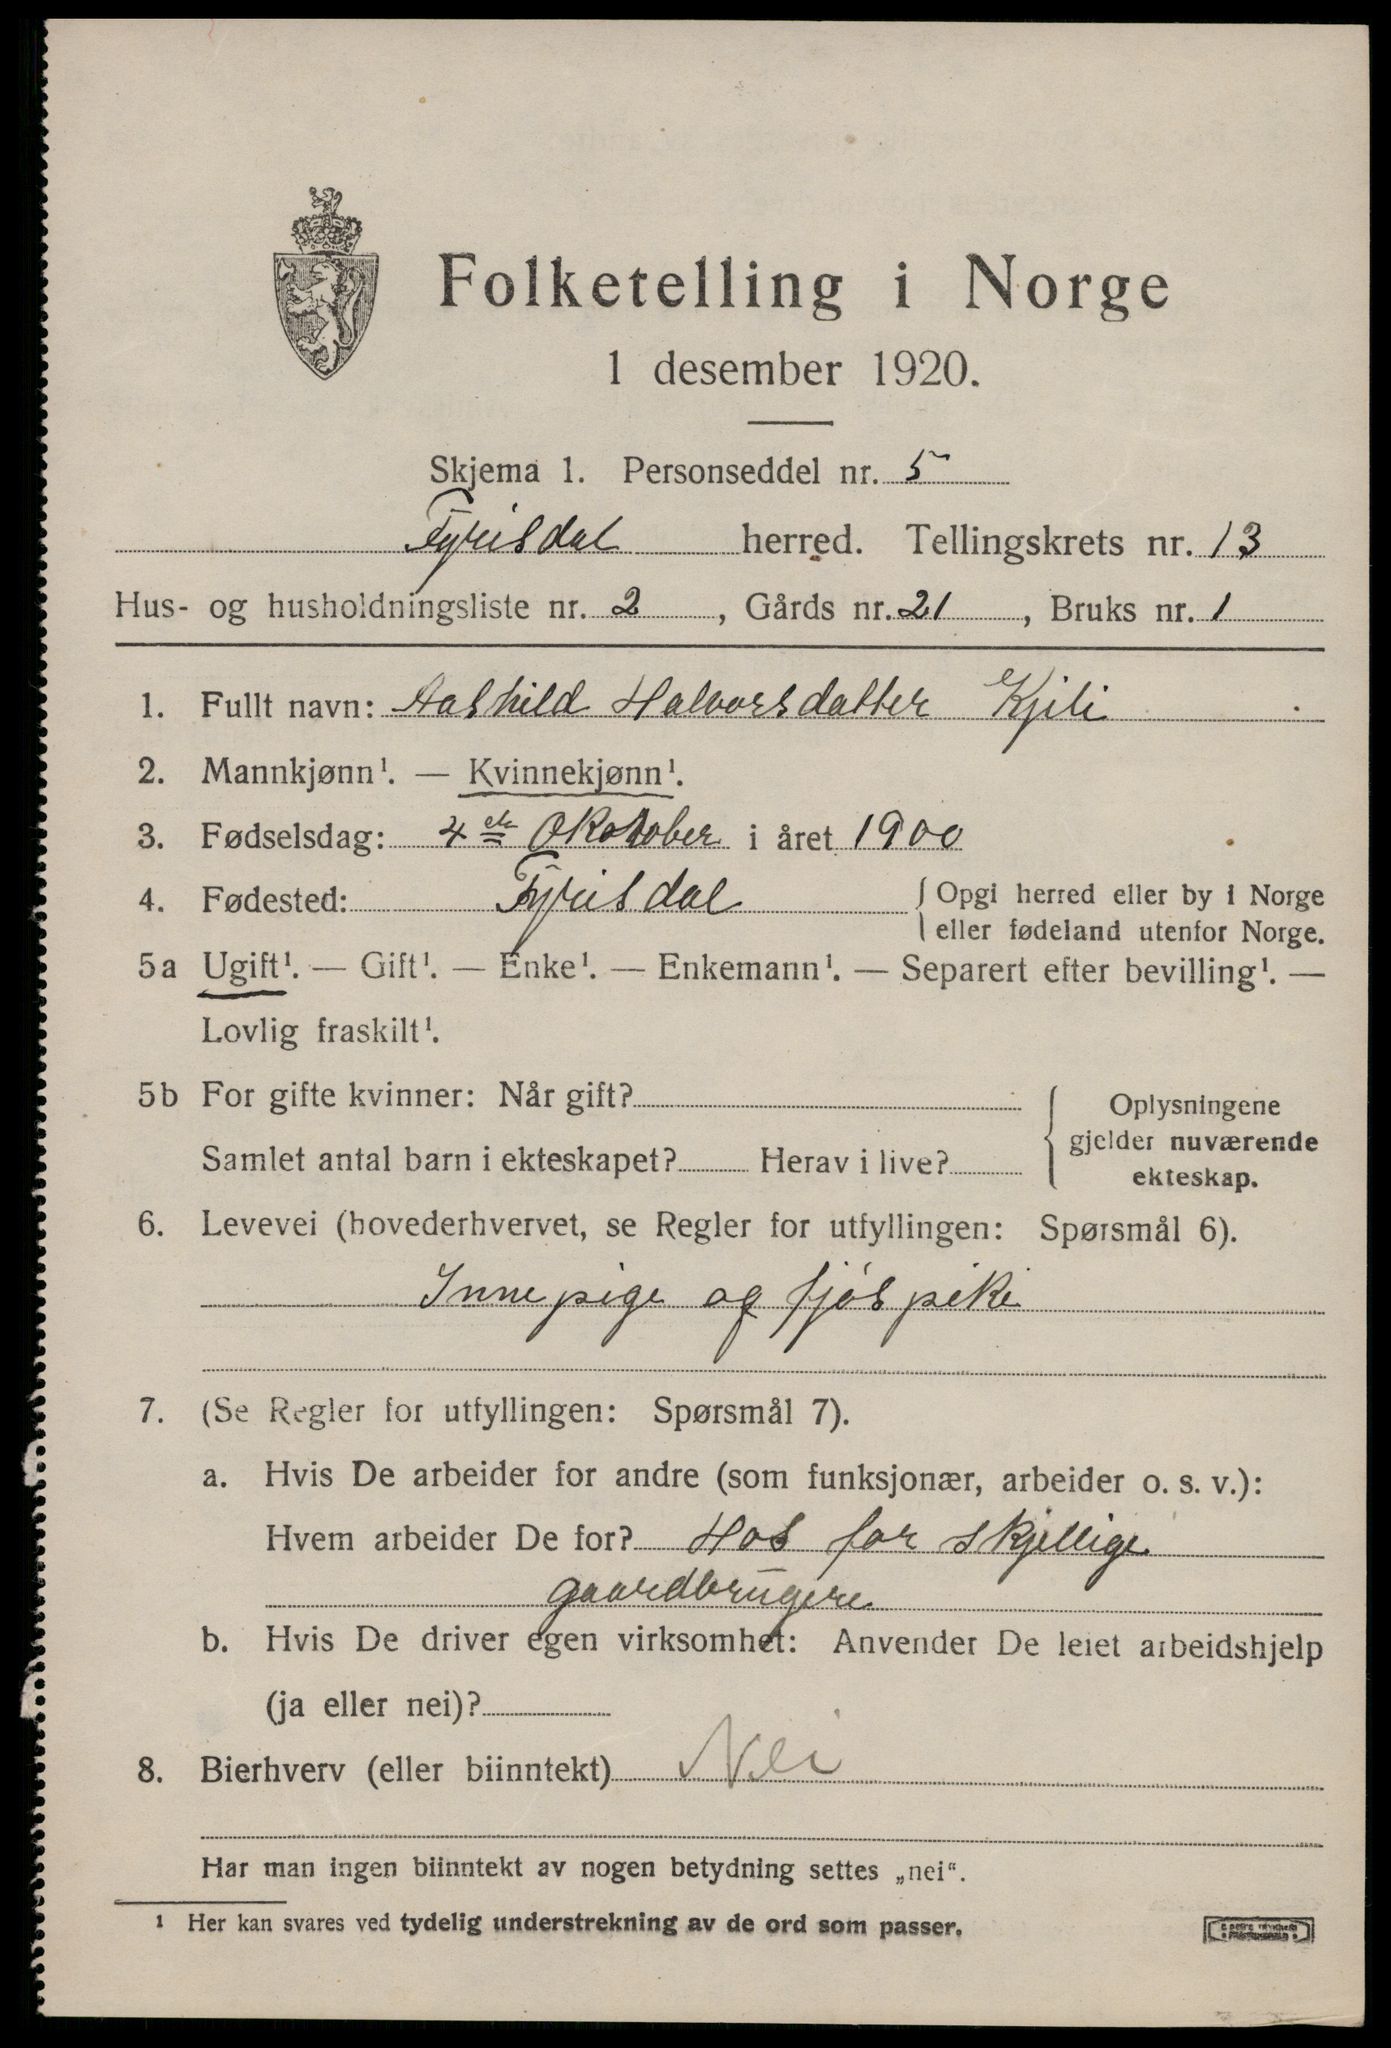 Folketelling i Norge
1 desember 1920.
Skjema 1. Personseddel nr. 5
Fyrisdal herred. Tellingskrets nr. 13
Hus- og husholdningsliste nr. 2, Gårds nr. 21, Bruks nr. 1
1. Fullt navn: Aashild Halvorsdatter Kjili
2. Mannkjønn¹. — Kvinnekjønn¹.
3. Fødselsdag: 4de Oktober i året 1900
4. Fødested: Fyrisdal { Opgi herred eller by i Norge
eller fødeland utenfor Norge.
5a Ugift¹. — Gift¹. — Enke¹. — Enkemann¹. — Separert efter bevilling¹. —
Lovlig fraskilt¹.
5b For gifte kvinner: Når gift? { Oplysningene
gjelder nuværende
ekteskap.
Samlet antal barn i ekteskapet? Herav i live?
6. Levevei (hovederhvervet, se Regler for utfyllingen: Spørsmål 6).
Innepige og fjøspike
7. (Se Regler for utfyllingen: Spørsmål 7).
a. Hvis De arbeider for andre (som funksjonær, arbeider o. s. v.):
Hvem arbeider De for? Hos forskjellige
gaardbrugere
b. Hvis De driver egen virksomhet: Anvender De leiet arbeidshjelp
(ja eller nei)?
8. Bierhverv (eller biinntekt) Nei
Har man ingen biinntekt av nogen betydning settes „nei“.
¹ Her kan svares ved tydelig understrekning av de ord som passer.